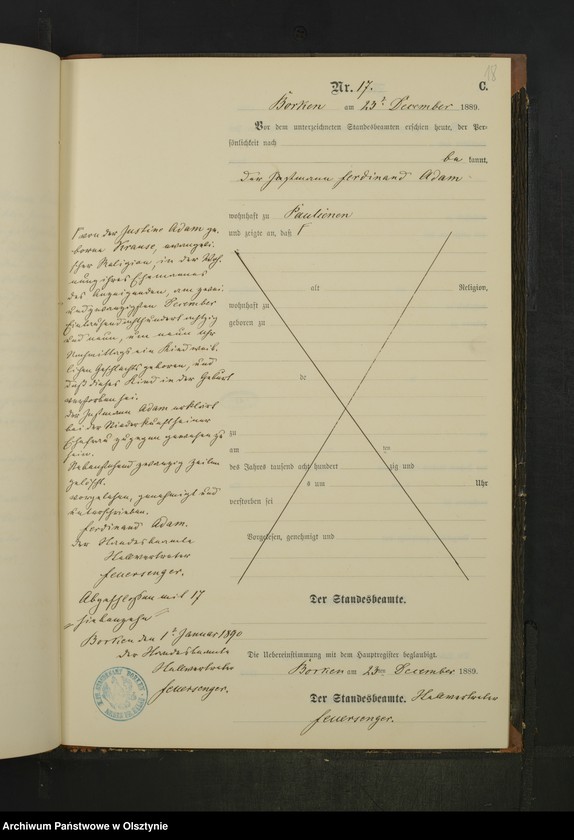 18
Nr. 17. C.
Borken am 23ten Dezember 1889.
Vor dem unterzeichneten Standesbeamten erschien heute, der Per-
sönlichkeit nach
be kannt,
der Instmann Ferdinand Adam
wohnhaft zu Paulienen
und zeigte an, daß
von der Justine Adam ge-
borene Krause, evangeli-
scher Religion, in der Woh-
nung ihres Ehemannes
des Anzeigenden, am zwei-
undzwanzigsten Dezember
Eintausendachthundert achtzig
und neun, um neun Uhr
Nachmittags ein Kind weib-
lichen Geschlechts geboren, und
daß dieses Kind in der Geburt
verstorben sei.
der Instmann Adam erklärt
bei der Niederkunft seiner
Ehefrau zugegen gewesen zu
sein.
Nebenstehend zwanzig Zeilen
gelöscht.
vorgelesen, genehmigt und
unterschrieben.
Ferdinand Adam.
der Standesbeamte
Stellvertreter
Feuersenger.
Abgeschlossen mit 17
siebenzehn
Borken den 1ten Januar 1890
der Standesbeamte
Stellvertreter
Feuersenger.
alt Religion,
wohnhaft zu
geboren zu
de
zu
am ten
des Jahres tausend acht hundert zig und
s um Uhr
verstorben sei
Vorgelesen, genehmigt und
Der Standesbeamte.
Die Uebereinstimmung mit dem Hauptregister beglaubigt.
Borken am 23ten Dezember 1889.
Der Standesbeamte. Stellvertreter
Feuersenger.
Archiwum Państwowe w Olsztynie